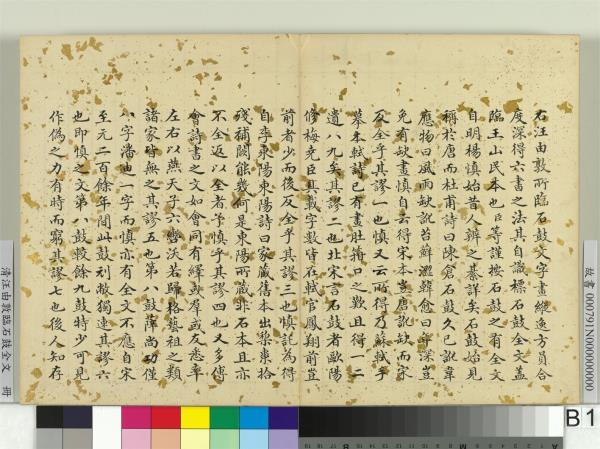 右汪由敦所臨石鼓文字畫維逸方員合
度深得六書之法其自識標石鼓全文蓋
臨王山民本也臣等謹按石鼓之有全文
自明楊慎始昔人辨之綦詳矣石鼓始見
稱於唐而杜甫詩曰陳倉石鼓久已訛韋
應物曰風雨缺訛苔蘚澀韓愈曰年深豈
免有缺畫慎自云得宋本豈唐訛缺而宋
反全乎其謬一也慎又云所得乃蘇軾手
摹本軾詩已有畫肚箝口之歎且得一二
遺八九矣其謬二也北宋言石鼓者歐陽
修梅堯臣具載字數皆在軾官鳳翔前豈
前者少而後反全乎其謬三也慎託為得
自李東陽東陽詩曰家藏舊本出梨棗拾
殘補闕能幾何是東陽所藏非石本且亦
不全返以全者予慎乎其謬四也又多傅
會詩書之文如會同有繹或羣或友悉率
左右以燕天子六轡沃若歸格藝祖之類
諸家皆無之其謬五也第八鼓薛尚功僅
八字潘迪一字而慎亦有全文不應自宋
至元二百餘年間此鼓刓敝獨速其謬六
也即慎之文第八鼓較餘九鼓特少可見
作偽之力有時而窮其謬七也後人知存
故書 000701N000000000
清汪由敦臨石鼓全文 冊
B1